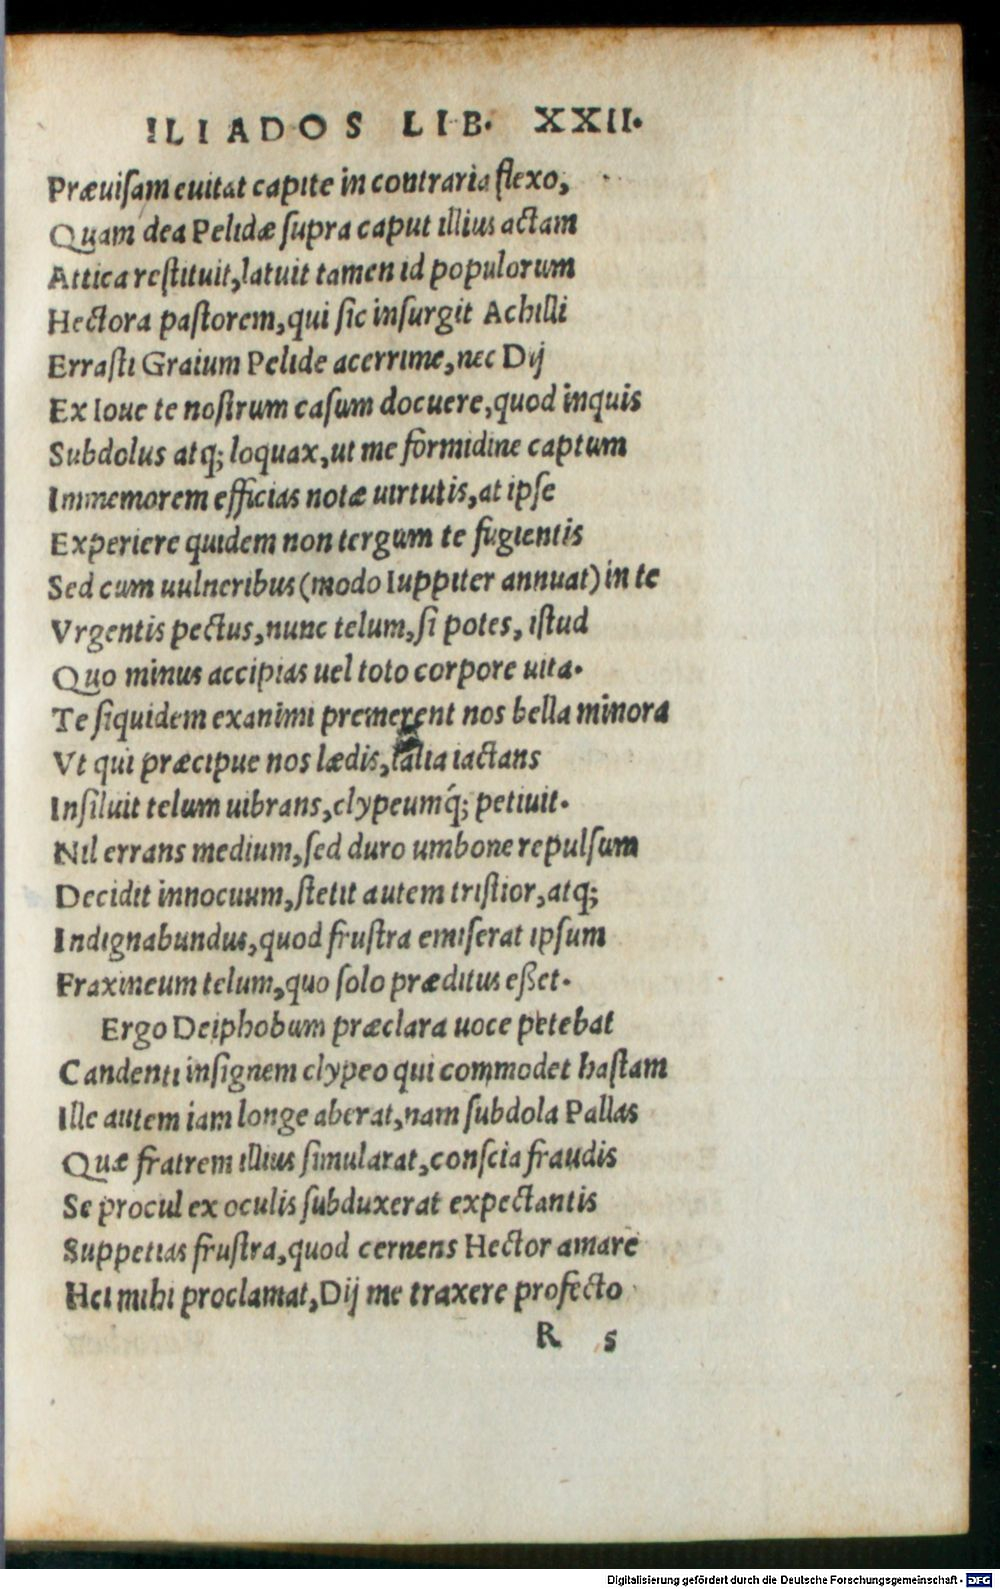 ILIADOS LIB. XXII.
Præuiſam euitat capite in contraria flexo,
Quam dea Pelidæ ſupra caput illius actam
Attica reſtituit, latuit tamen id populorum
Hectora paſtorem, qui ſic inſurgit Achilli
Erraſti Graium Pelide acerrime, nec Dij
Ex Ioue te noſtrum caſum docuere, quod inquis
Subdolus atq; loquax, ut me formidine captum
Immemorem efficias notæ uirtutis, at ipſe
Experiere quidem non tergum te fugientis
Sed cum uulneribus (modo Iuppiter annuat) in te
Vrgentis pectus, nunc telum, ſi potes, iſtud
Quo minus accipias uel toto corpore uita.
Te ſiquidem exanimi premerent nos bella minora
Vt qui præcipue nos lædis, talia iactans
Inſiluit telum uibrans, clypeumq́; petiuit.
Nil errans medium, ſed duro umbone repulſum
Decidit innocuum, ſtetit autem triſtior, atq;
Indignabundus, quod fruſtra emiſerat ipſum
Fraxineum telum, quo ſolo præditus eßet.
Ergo Deiphobum præclara uoce petebat
Candenti inſignem clypeo qui commodet haſtam
Ille autem iam longe aberat, nam ſubdola Pallas
Quæ fratrem illius ſimularat, conſcia fraudis
Se procul ex oculis ſubduxerat expectantis
Suppetias fruſtra, quod cernens Hector amare
Hei mihi proclamat, Dij me traxere profecto
R s
Digitalisierung gefördert durch die Deutsche Forschungsgemeinschaft - DFG